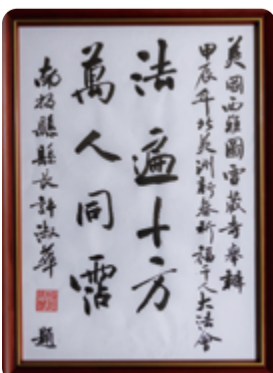 美國西雅圖雷藏寺舉辦
甲辰年北美洲新春祈福千人大法會
法遍十方
萬人同霑
南投縣縣長許淑華
題